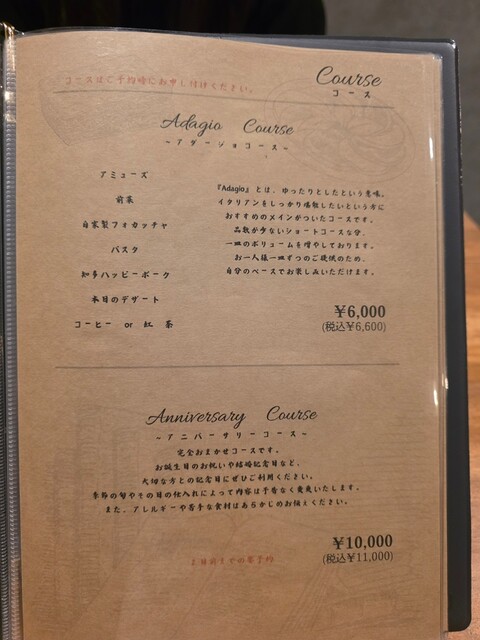 Course
コース
コースはご予約時にお申し付けください。
Adagio Course
～アダージョコース～
アミューズ
前菜
自家製フォカッチャ
パスタ
知多ハッピーポーク
本日のデザート
コーヒー or 紅茶
『Adagio』とは、ゆったりとしたという意味。
イタリアンをしっかり堪能したいという方に
おすすめのメインがついたコースです。
品数が少ないショートコースな分、
一皿のボリュームを増やしております。
お一人様一皿ずつのご提供のため、
自分のペースでお楽しみいただけます。
¥6,000
(税込¥6,600)
Anniversary Course
～アニバーサリーコース～
完全おまかせコースです。
お誕生日のお祝いや結婚記念日など、
大切な方との記念日にぜひご利用ください。
季節の旬やその日の仕入れによって内容は予告なく変更いたします。
また、アレルギーや苦手な食材はあらかじめお伝えください。
¥10,000
(税込¥11,000)
2日前までの要予約